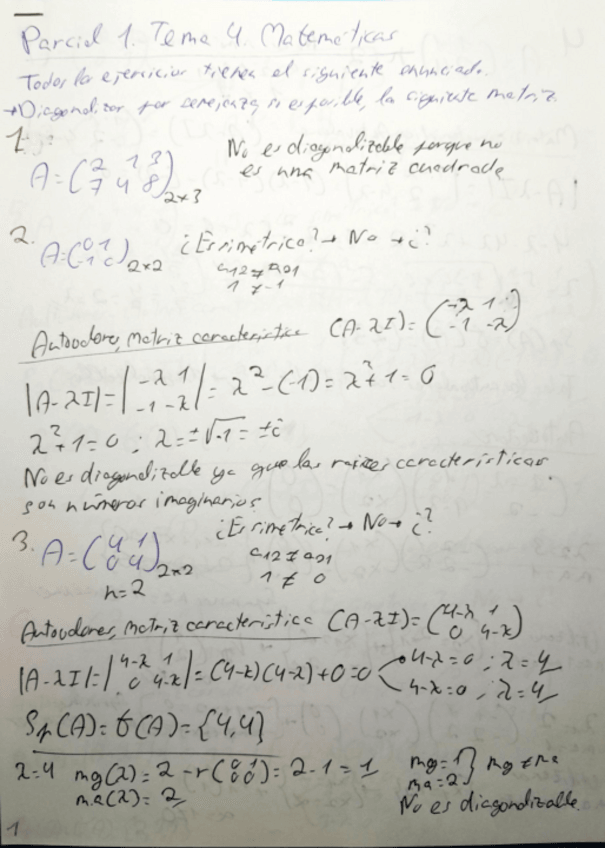 Parcial 1. Tema 4. Matemáticas
Todos los ejercicios tienen el siguiente enunciado.
→Diagonalizar por semejanza, si es posible, la siguiente matriz
1.
A=(2 1 3
7 4 8)2x3
No es diagonalizable porque no
es una matriz cuadrada
2.
A=(0 1
-1 0)2x2
¿Es simétrica?→ No →¿?
a12≠a21
1 ≠ -1
Autovalores, matriz característica (A-λI)=(-λ 1
-1 -λ)
|A-λI|=|-λ 1
-1 -λ|= λ²-(-1)= λ²+1=0
λ²+1=0 ; λ=±√-1=±i
No es diagonalizable ya que las raíces características
son números imaginarios
3.
A=(4 1
0 4)2x2
n=2
¿Es simétrica?→ No→ ¿?
a12≠a21
1 ≠ 0
Autovalores, matriz característica (A-λI)=(4-λ 1
0 4-λ)
|A-λI|=|4-λ 1
0 4-λ|=(4-λ)(4-λ)+0=0
4-λ=0 ; λ=4
4-λ=0 ; λ=4
Sp(A)=σ(A)={4,4}
λ=4 mg(λ)=2-r(0 1
0 0)=2-1=1
ma(λ)=2
mg=1
ma=2} mg≠ma
No es diagonalizable
1